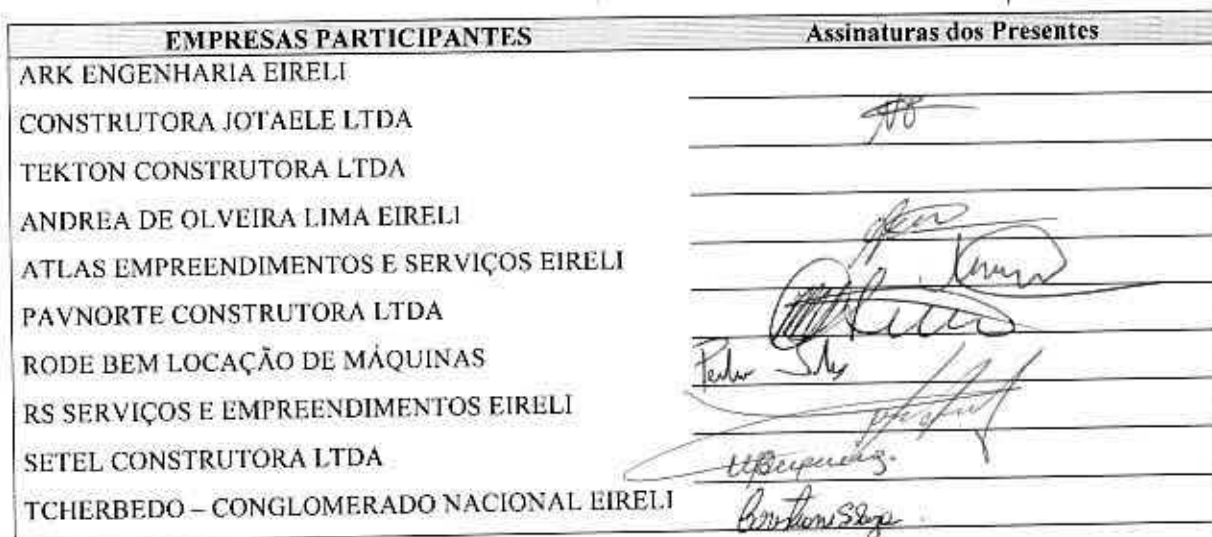 EMPRESAS PARTICIPANTES Assinaturas dos Presentes
ARK ENGENHARIA EIRELI
CONSTRUTORA JOTAELE LTDA
TEKTON CONSTRUTORA LTDA
ANDREA DE OLVEIRA LIMA EIRELI
ATLAS EMPREENDIMENTOS E SERVIÇOS EIRELI
PAVNORTE CONSTRUTORA LTDA
RODE BEM LOCAÇÃO DE MÁQUINAS
RS SERVIÇOS E EMPREENDIMENTOS EIRELI
SETEL CONSTRUTORA LTDA
TCHERBEDO – CONGLOMERADO NACIONAL EIRELI